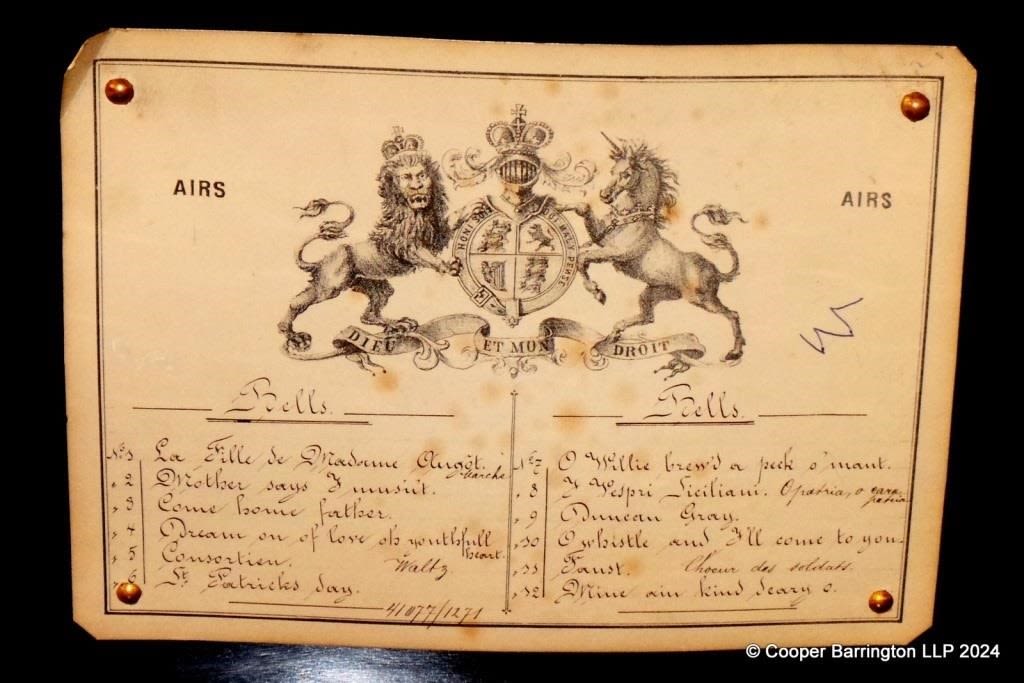 AIRS
AIRS
HONI SOIT QUI MAL Y PENSE
DIEU ET MON DROIT
Bells.
No 1 La Fille de Madame Angot. Marche
" 2 Mother says I musn't.
" 3 Come home father.
" 4 Dream on of love oh youthfull heart.
" 5 Consortien. Waltz
" 6 St Patricks day.
41077/1271
Bells.
No 7 O Willie brew'd a peck o'maut.
" 8 I Vespri Siciliani. O patria, o cara patria
" 9 Duncan Gray.
" 10 O whistle and I'll come to you.
" 11 Faust. Choeur des soldats.
" 12 Mine ain kind deary o.
© Cooper Barrington LLP 2024